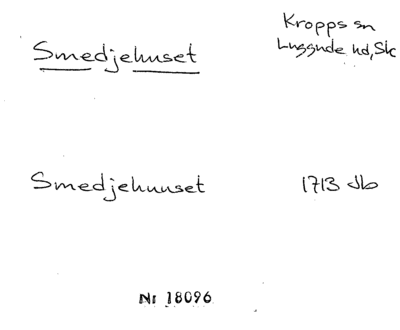 Smedjehuset
Kropps sn
Luggude hd, Sk
Smedjehuuset
1713 Jb
Nr 18096